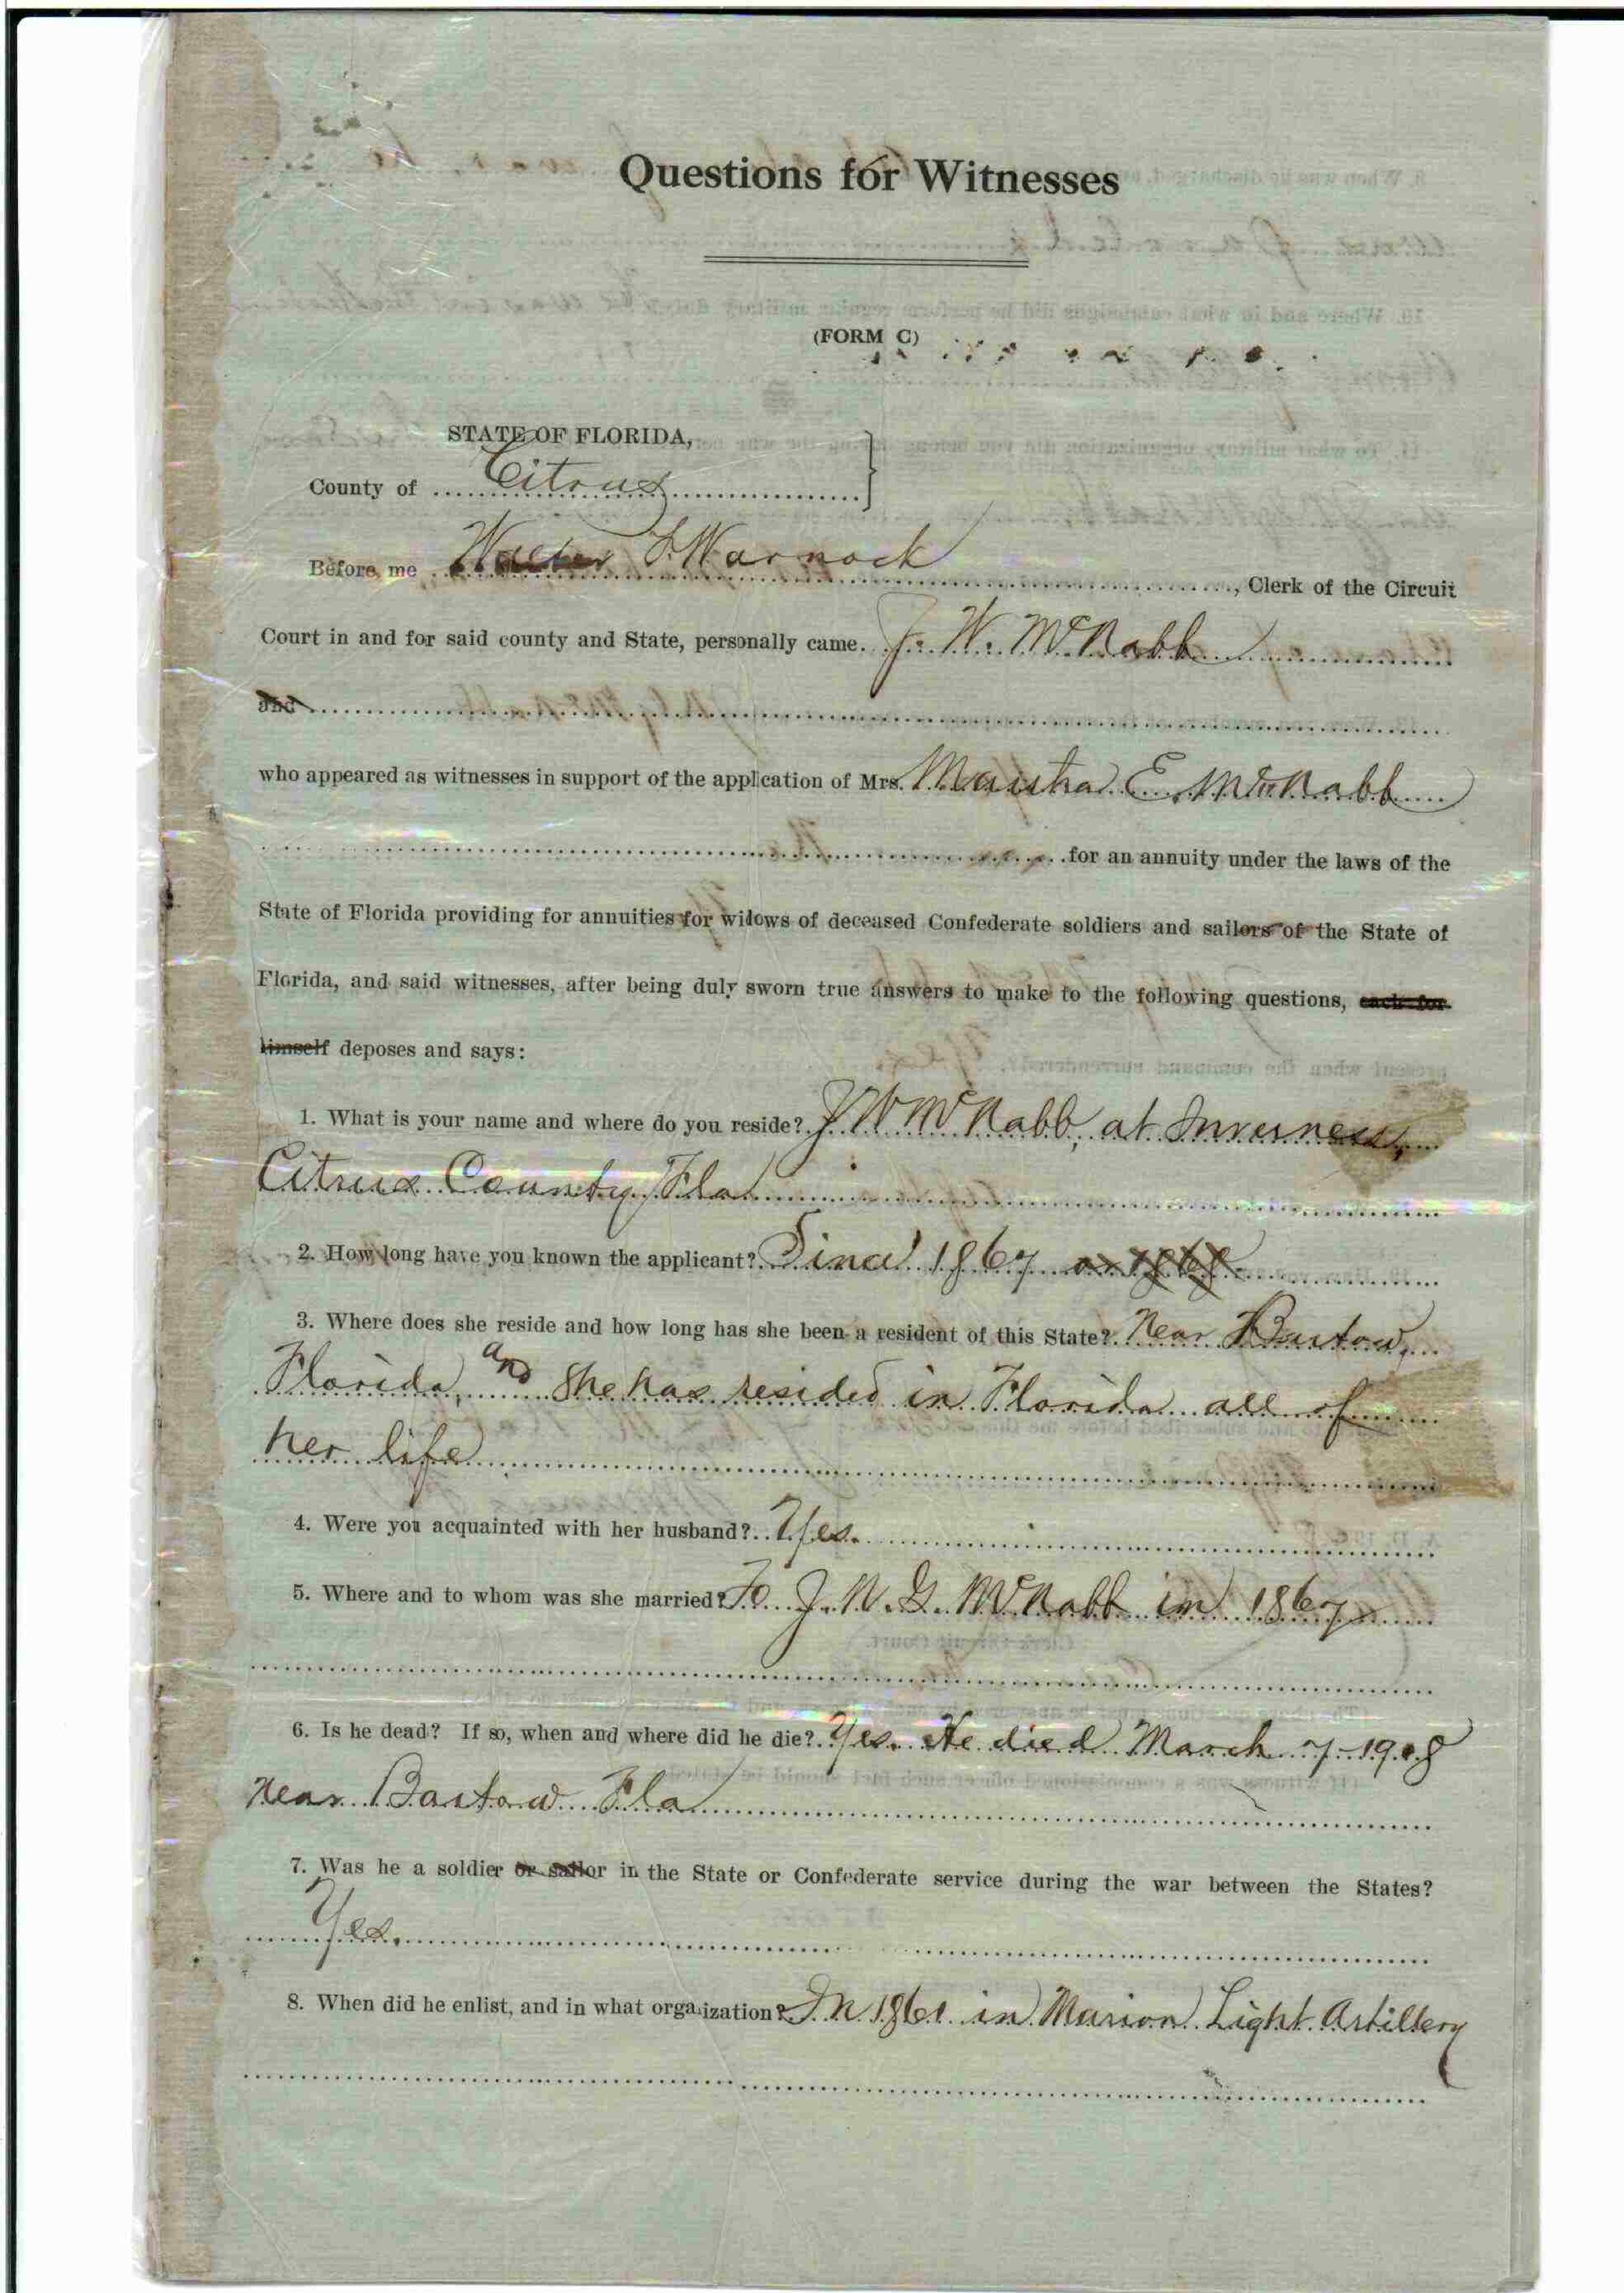 Questions for Witnesses
(FORM C)
STATE OF FLORIDA,
County of Citrus
Before me Walter F. Warnock, Clerk of the Circuit
Court in and for said county and State, personally came. J. W. McNabb
and
who appeared as witnesses in support of the application of Mrs. Martha E. McNabb
for an annuity under the laws of the
State of Florida providing for annuities for widows of deceased Confederate soldiers and sailors of the State of
Florida, and said witnesses, after being duly sworn true answers to make to the following questions, each for
himself deposes and says:
1. What is your name and where do you reside? J W McNabb, at Inverness,
Citrus County, Fla
2. How long have you known the applicant? Since 1867 or 1868
3. Where does she reside and how long has she been a resident of this State? Near Bartow,
Florida, and she has resided in Florida all of
her life
4. Were you acquainted with her husband? Yes.
5. Where and to whom was she married? To J. N. G. McNabb in 1867
6. Is he dead? If so, when and where did he die? Yes. He died March 7-1908
near Bartow Fla
7. Was he a soldier or sailor in the State or Confederate service during the war between the States?
Yes.
8. When did he enlist, and in what organization? In 1861 in Marion Light Artillery